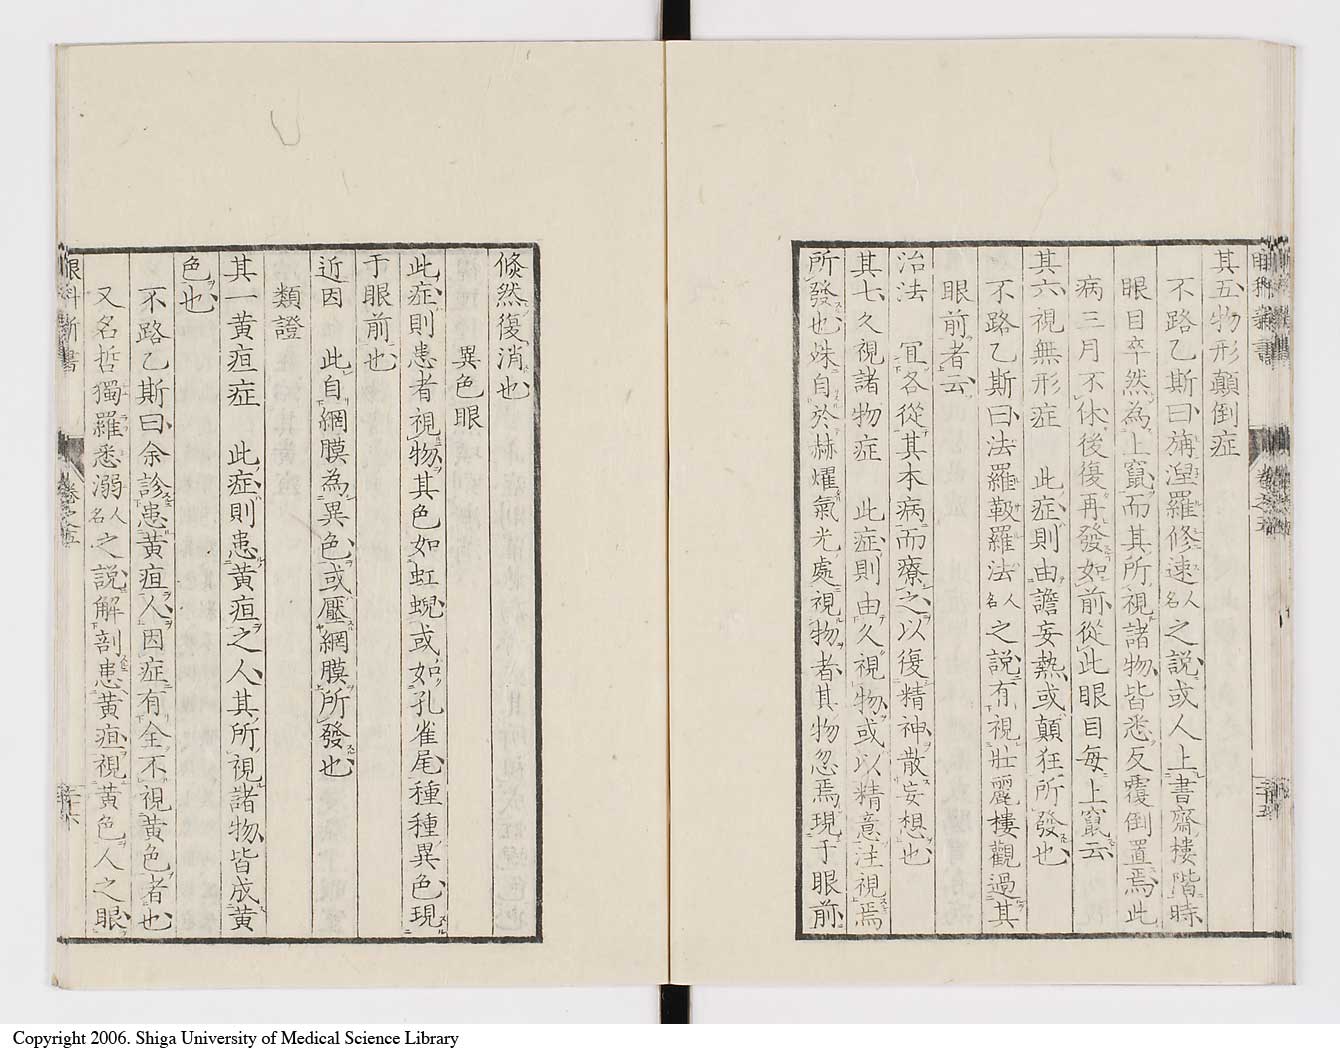 其五物形顛倒症
不路乙斯曰旃涅羅修速人名之説或人上書齋樓階時
眼目卒然為上竄而其所視諸物皆悉反覆倒置焉此
病三月不休後復再發如前從此眼目每上竄云
其六視無形症　此症則由譫妄熱或顛狂所發也
不路乙斯曰法羅㪍羅法人名之説有視壯麗樓觀過其
眼前者云
治法　冝各從其本病而療之以復精神散妄想也
其七久視諸物症　此症則由久視物或以精意注視焉
所發也殊自於赫燿氣光處視物者其物忽焉現于眼前
卷之五
二十五
倏然復消也
異色眼
此症則患者視物其色如虹蜺或如孔雀尾種種異色現
于眼前也
近因　此自網膜為異色或壓網膜所發也
類證
其一黄疸症　此症則患黄疸之人其所視諸物皆成黄
色也
不路乙斯曰余診患黄疸人因症有全不視黄色者也
又名哲獨羅悉溺人名之説解剖患黄疸視黄色人之眼
眼科新書
卷之五
二十六
Copyright 2006. Shiga University of Medical Science Library